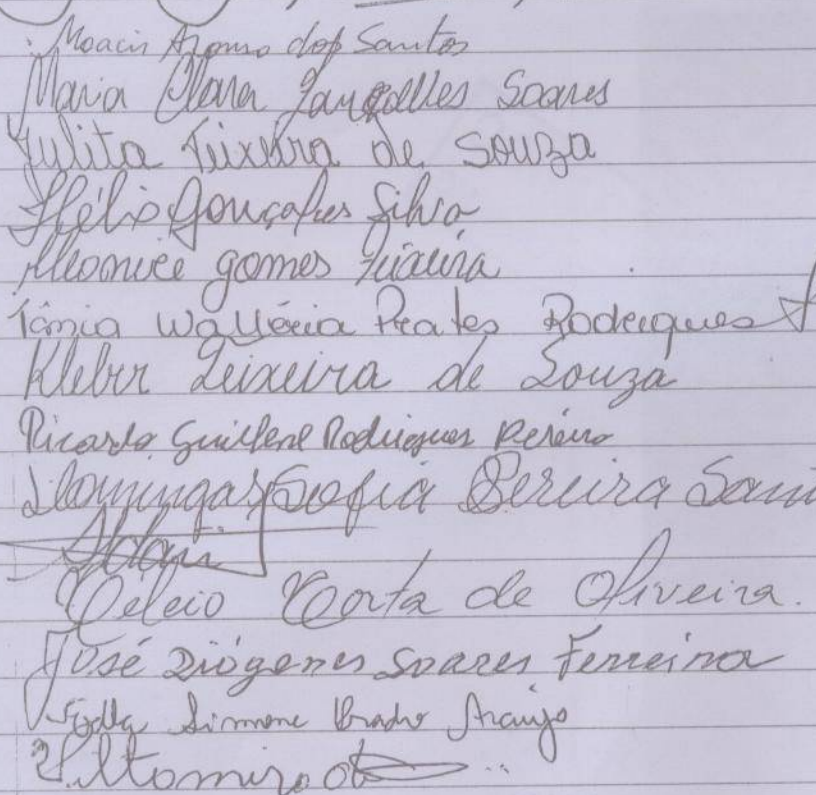 Moacir Afonso dos Santos
Maria Clara Soares
Julita Teixeira de Souza
Hélio Gonçalves Silva
Cleonice gomes Teixeira
Tânia Walléria Prates Rodrigues
Kleber Teixeira de Souza
Ricardo Guilherme Rodrigues Pereira
Domingas Sofia Pereira
Célcio Costa de Oliveira.
José Diógenes Soares Ferreira
Simone Prado Araujo